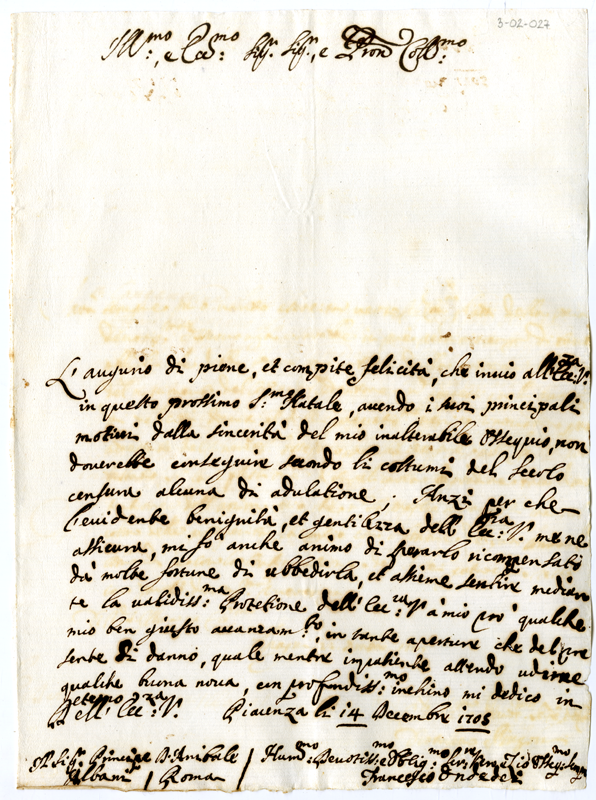 3-02-027
Ill:mo, e Ecc:mo Sig.r Sig.r, e Pron Coll:mo
L'augurio di piene, et compite felicità, che invio all'Ecc:za V.
in questo prossimo S.mo Natale, auendo i suoi principali
motiui dalla sincerità del mio inalterabile ossequio, non
douerebbe conseguire secondo li costumi del secolo
censura alcuna di adulatione; Anzi per che
l'euidente benignità, et gentilezza dell'Ecc:za V. me ne
assicura, mi fò anche animo di sperarlo ricompensato
dà molte fortune di ubbedirla, et assieme sentire median
te la validiss:ma Protetione dell'Ecc:za V. à mio prò qualche
mio ben giusto auanzam:to, in tante aperture che del pre
sente si danno, quale mentre impatiente attendo udirne
qualche buona noua, con profondiss:mo inchino mi dedico in
eterno
Dell'Ecc:za V. Piacenza li 14 Decembre 1705
Sig.r Principe D. Anibale / Hum:mo Deuotiss:mo Oblig:mo Ser:re Zio
Albani / Roma Francesco Ondedei